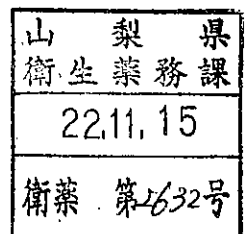 山梨県
衛生薬務課
22.11.15
衛薬 第2632号